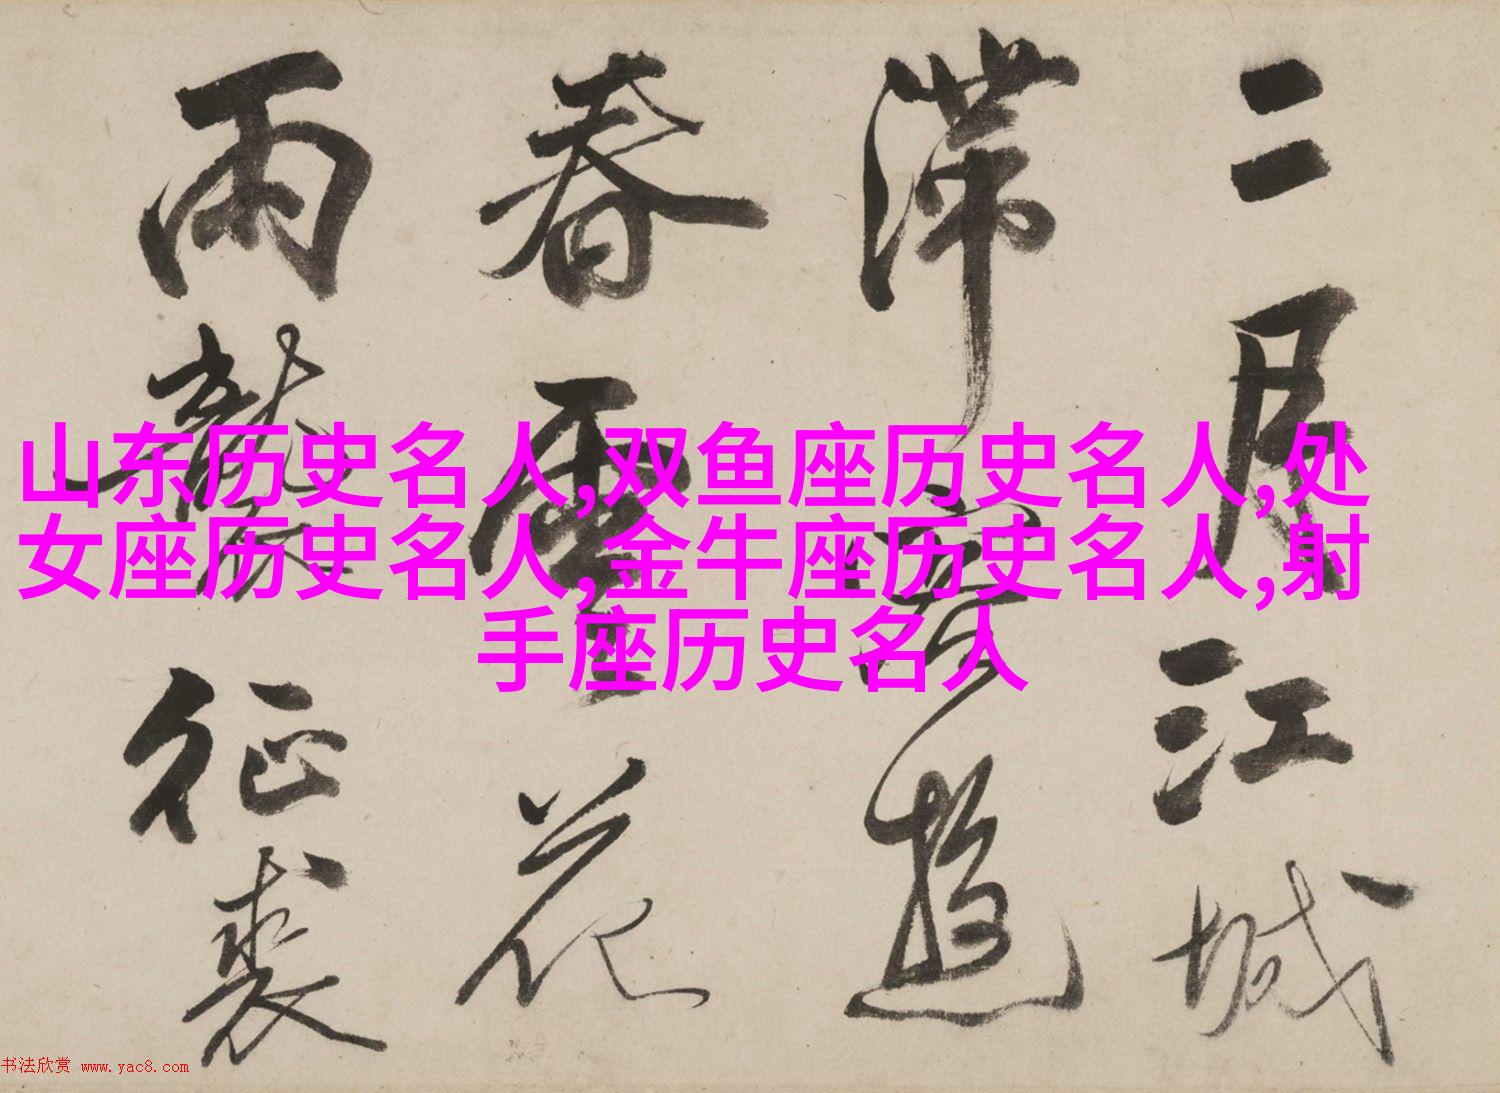 二月江城
滞客游
春雪花
雨袭征裘
山东历史名人,双鱼座历史名人,处
女座历史名人,金牛座历史名人,射
手座历史名人
书法欣赏 www.yac8.com